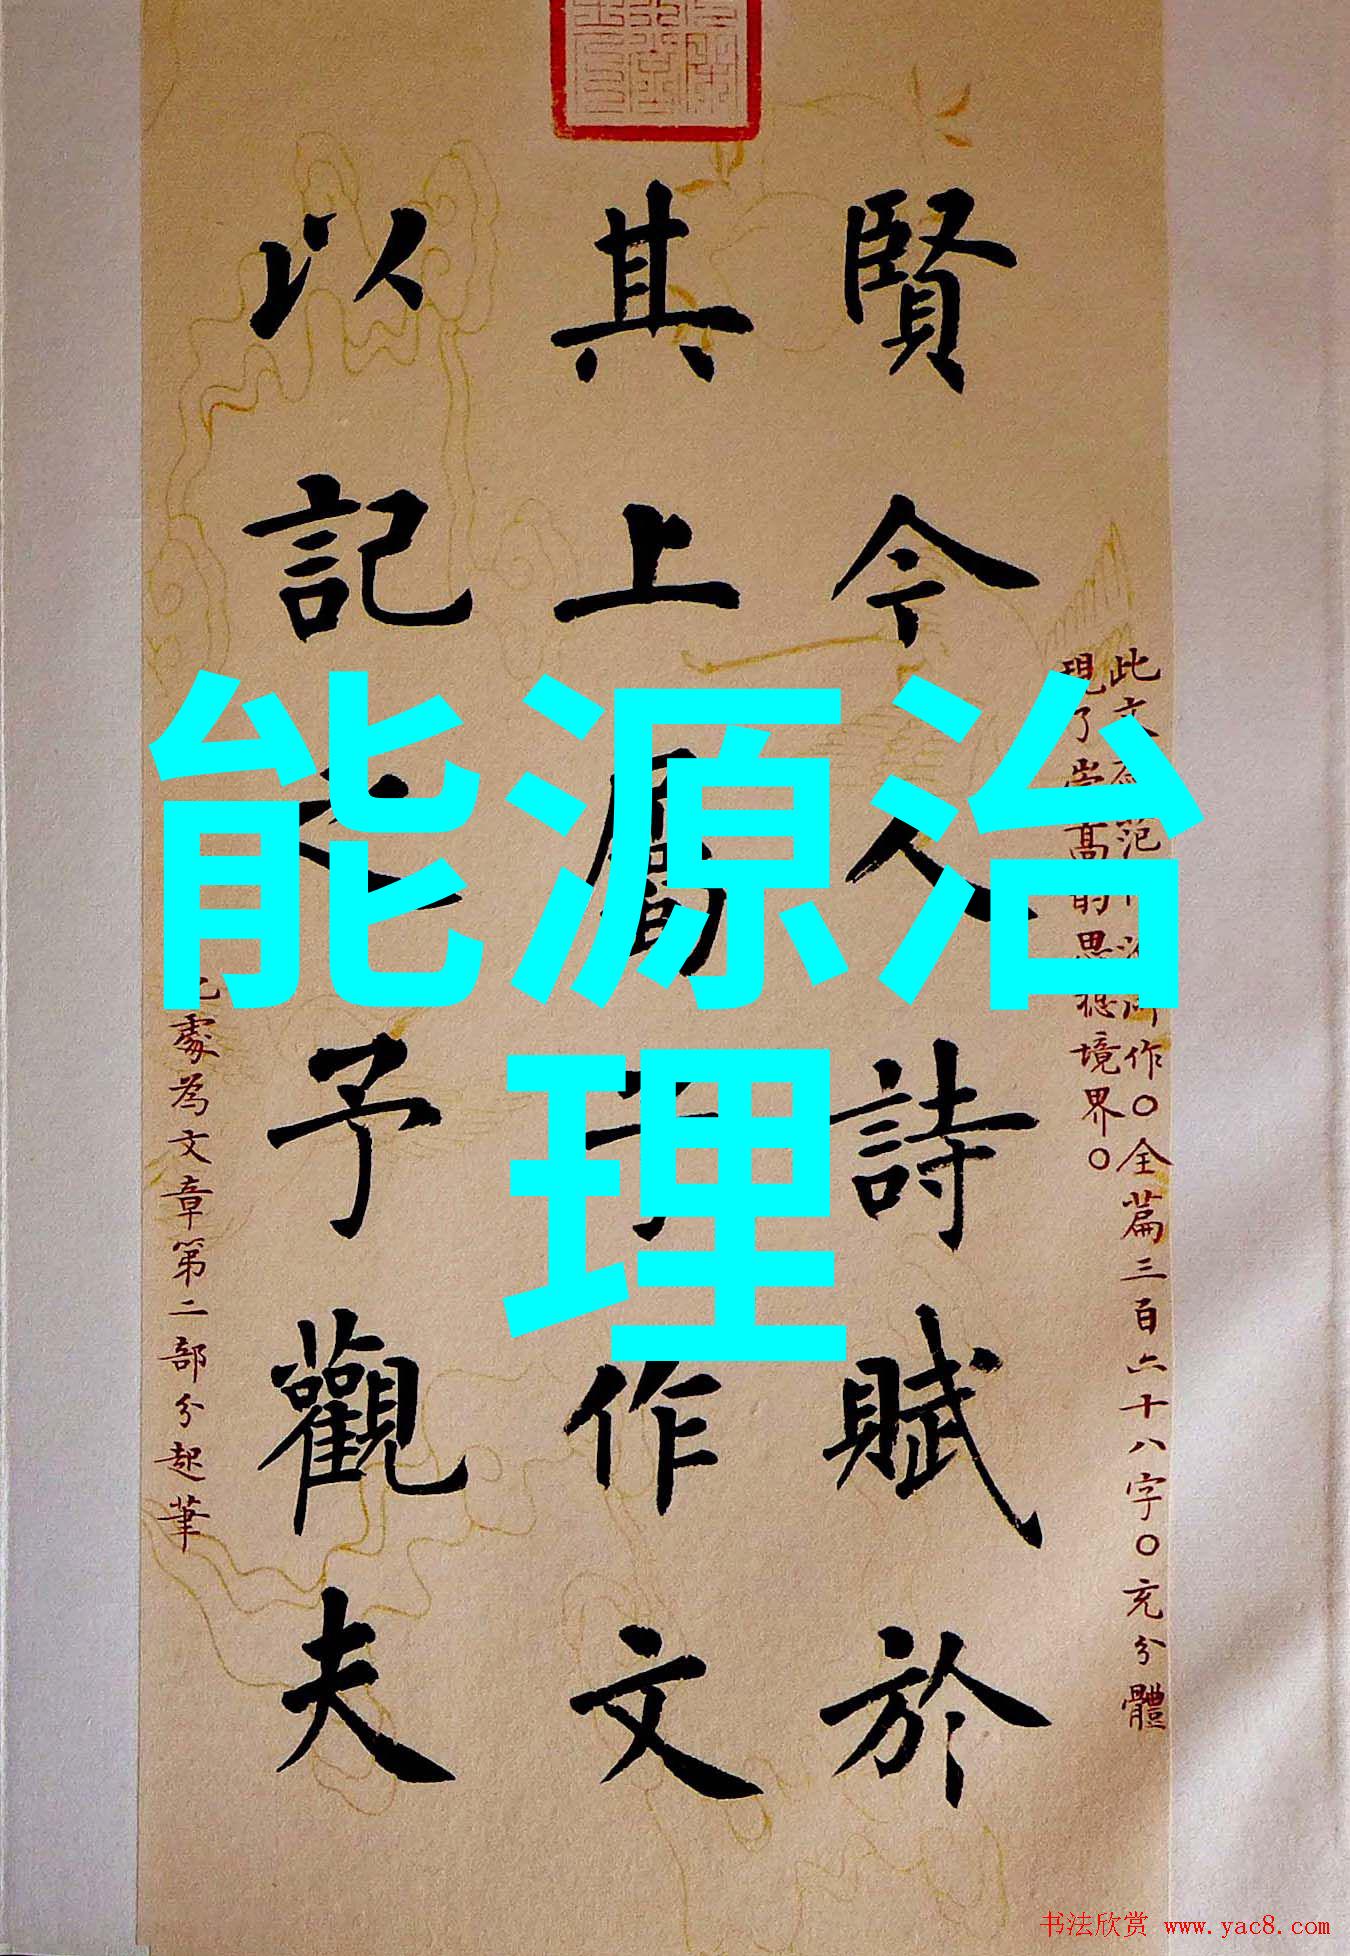 能源治
理
此文范作○全篇三百六十八字○充分體
現了崇高的思境界○
賢今人詩賦於
其上屬予作文
以記之予觀夫
處為文章第二部分起筆
书法欣赏 www.yac8.com